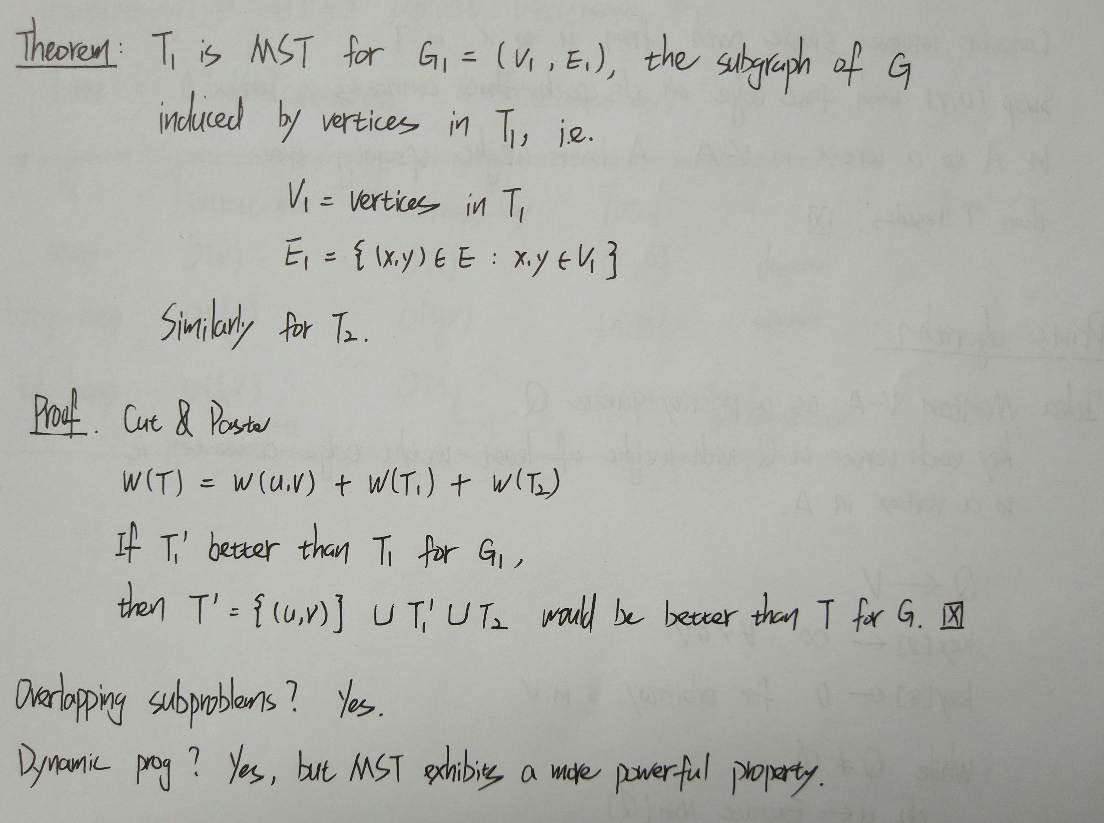 Theorem: T₁ is MST for G₁ = (V₁, E₁), the subgraph of G
induced by vertices in T₁, i.e.
V₁ = vertices in T₁
E₁ = { (x,y) ∈ E : x,y ∈ V₁ }
Similarly for T₂.
Proof. Cut & Paste
W(T) = W(u,v) + W(T₁) + W(T₂)
If T₁' better than T₁ for G₁,
then T' = {(u,v)} ∪ T₁' ∪ T₂ would be better than T for G. ☒
Overlapping subproblems? Yes.
Dynamic prog? Yes, but MST exhibits a more powerful property.